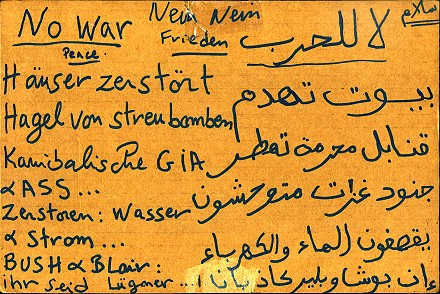 No War
Peace
Nein Nein
Frieden
لا للحرب
سلام
Häuser zerstört
Hagel von streubomben
Kanibalische GiA
& ASS...
Zerstoren: Wasser
& Strom...
BUSH & BLair:
ihr seid Lügner...!
بيوت تهدم
قنابل محرمة تمطر
جنود غزات متوحشون
يقصفون الماء والكهرباء
إن بوشا وبلير كاذبان